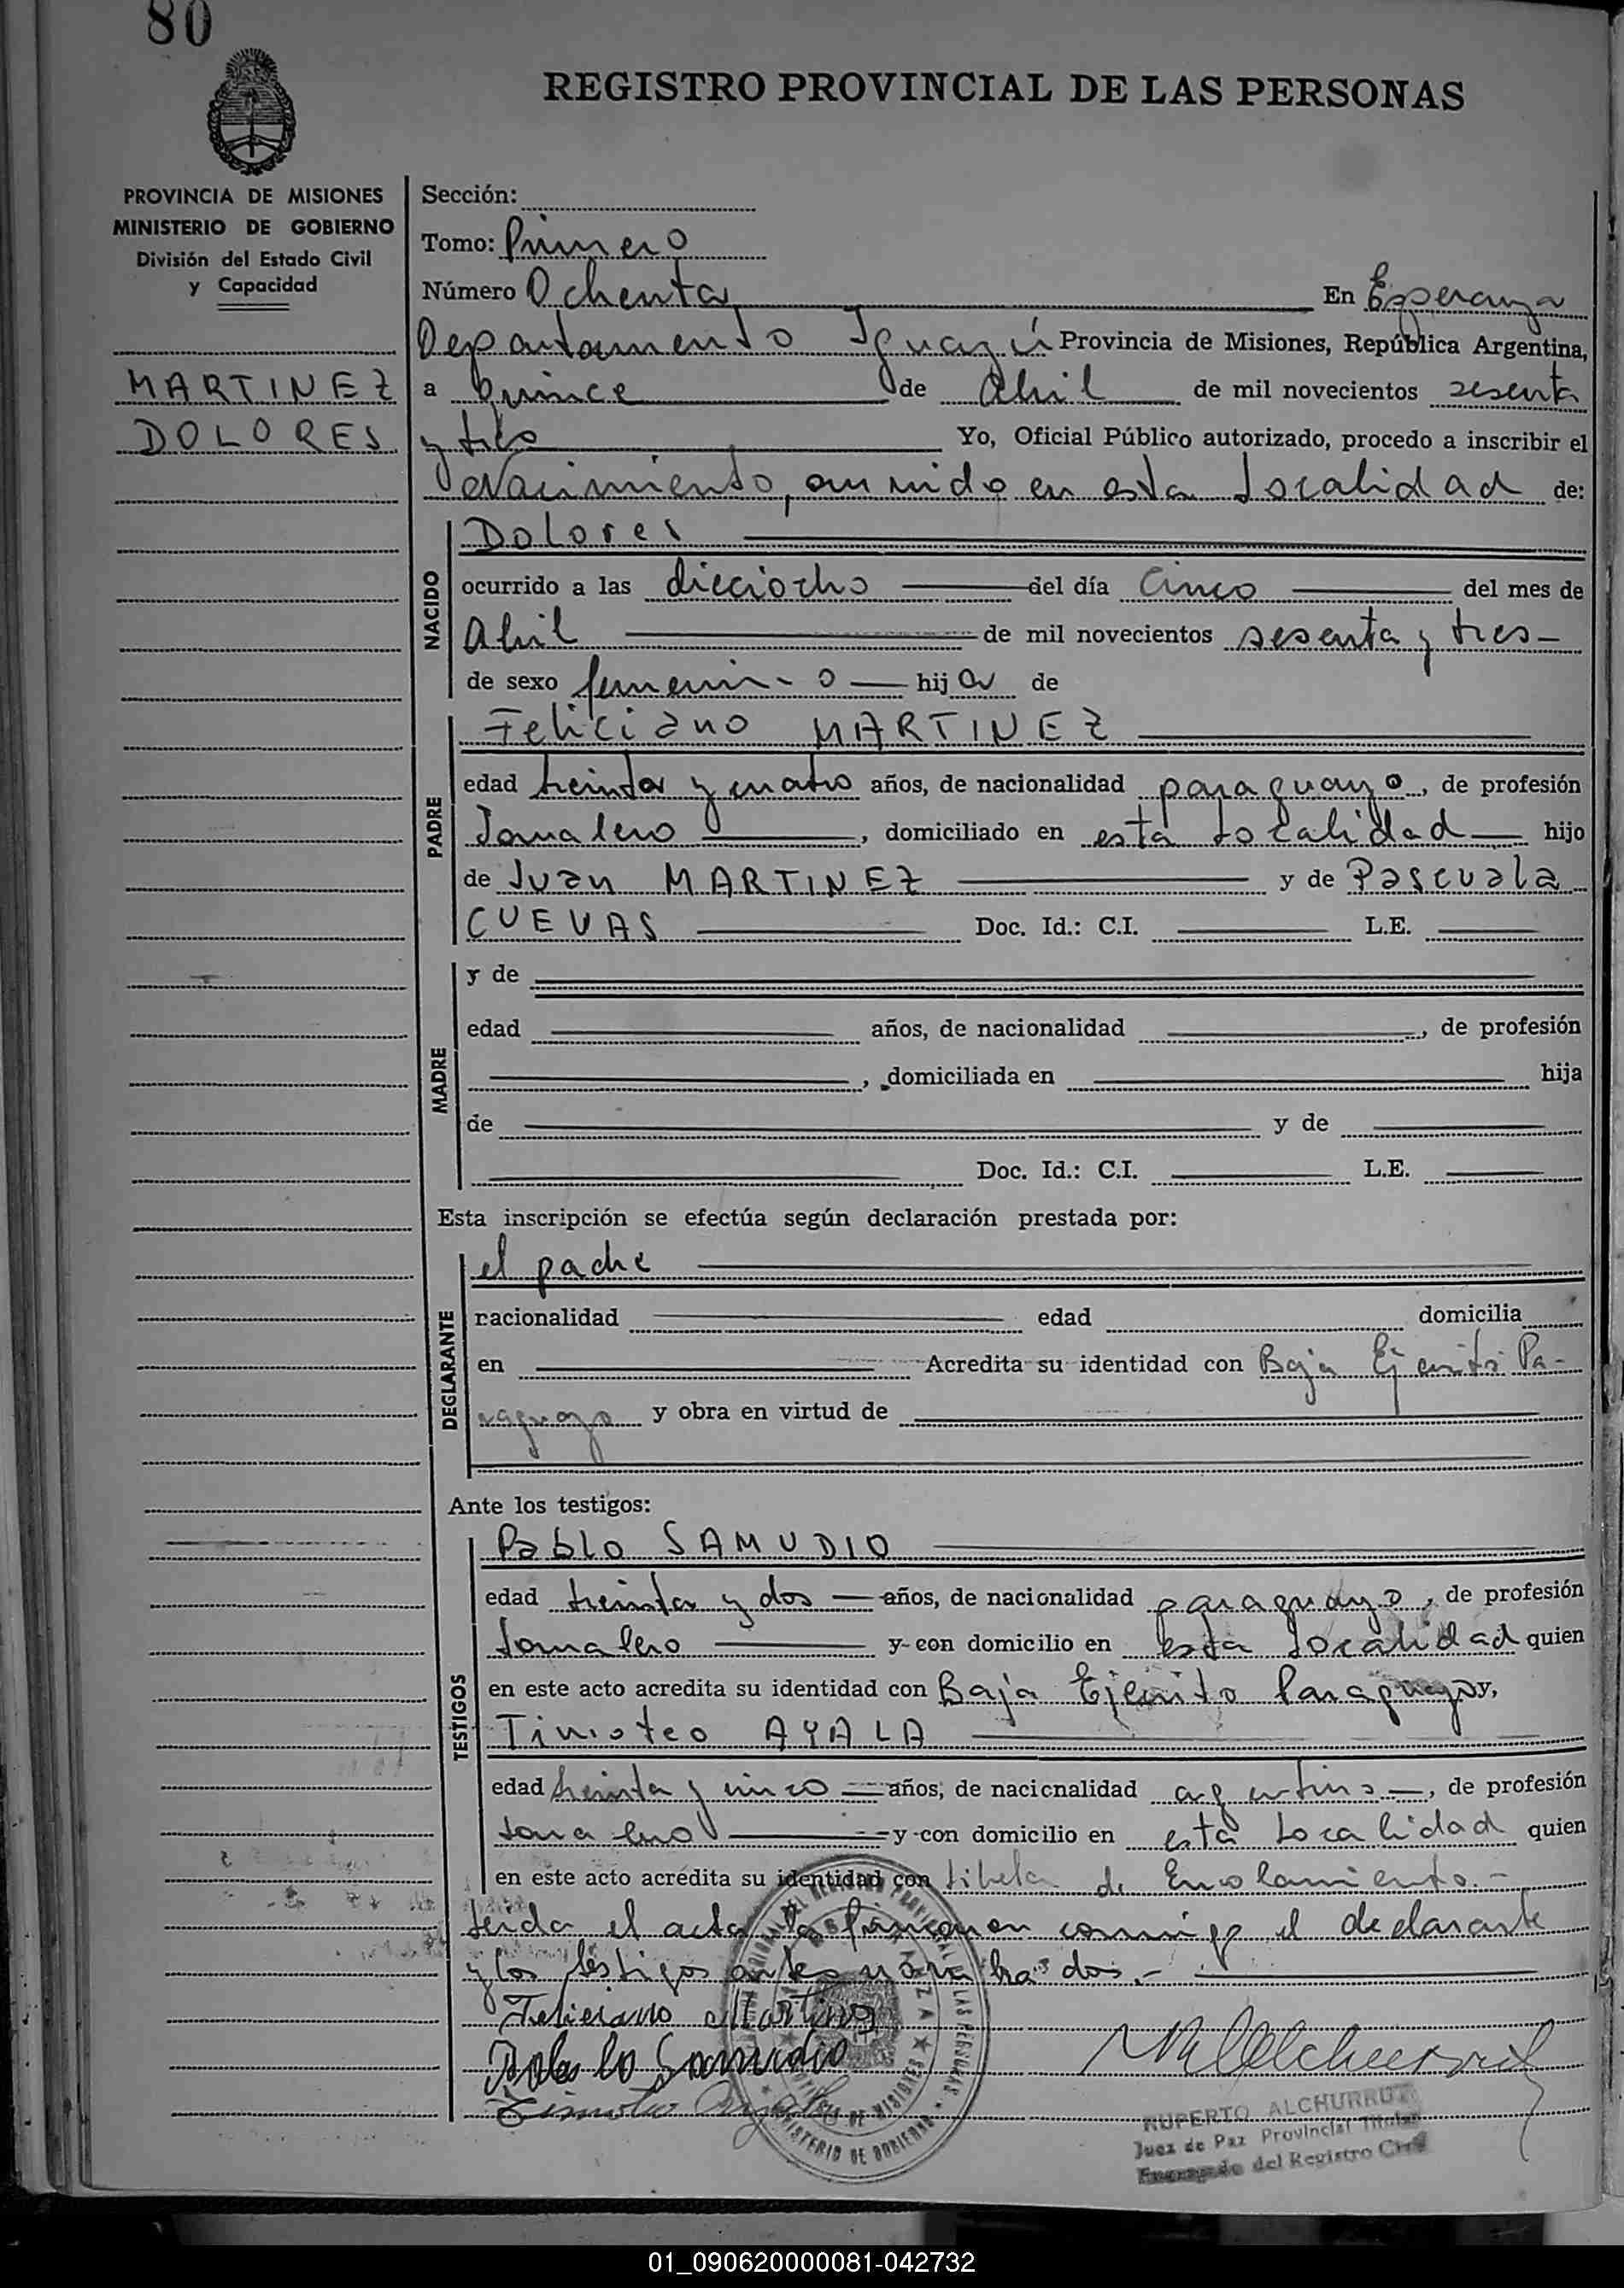 80
REGISTRO PROVINCIAL DE LAS PERSONAS
PROVINCIA DE MISIONES
MINISTERIO DE GOBIERNO
División del Estado Civil
y Capacidad
MARTINEZ
DOLORES
Sección:
Tomo: Primero
Número Ochenta En Esperanza
Departamento Iguazú Provincia de Misiones, República Argentina,
a quince de Abril de mil novecientos sesenta
y tres Yo, Oficial Público autorizado, procedo a inscribir el
Nacimiento, ocurrido en esta Localidad de:
NACIDO
Dolores
ocurrido a las dieciocho del día Cinco del mes de
Abril de mil novecientos sesenta y tres
de sexo femenino hija de
PADRE
Feliciano MARTINEZ
edad treinta y cuatro años, de nacionalidad paraguayo, de profesión
Jornalero, domiciliado en esta Localidad hijo
de Juan MARTINEZ y de Pascuala
CUEVAS Doc. Id.: C.I. L.E.
MADRE
y de
edad años, de nacionalidad , de profesión
, domiciliada en hija
de y de
Doc. Id.: C.I. L.E.
Esta inscripción se efectúa según declaración prestada por:
DECLARANTE
el padre
nacionalidad edad domicilia
en Acredita su identidad con Baja Ejercito Pa-
raguayo y obra en virtud de
Ante los testigos:
TESTIGOS
Pablo SAMUDIO
edad treinta y dos años, de nacionalidad paraguayo, de profesión
Jornalero y con domicilio en esta Localidad quien
en este acto acredita su identidad con Baja Ejercito Paraguayo y,
Timoteo AYALA
edad treinta y cinco años, de nacionalidad argentino, de profesión
Jornalero y con domicilio en esta Localidad quien
en este acto acredita su identidad con Libreta de Enrolamiento.-
Leida el acta la firmaron conmigo el declarante
y los testigos antes nombrados.-
Feliciano Martinez
Pablo Samudio
Timoteo Ayala
RUPERTO ALCHURRUT
Juez de Paz Provincial Titular
Encargado del Registro Civil
01_090620000081-042732